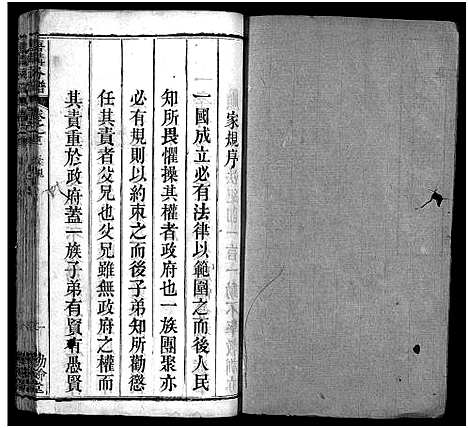 家規序
一國成立必有法律以範圍之而後人民
知所畏懼操其權者政府也一族團聚亦
必有規則以約束之而後子弟知所勸懲
任其責者父兄也父兄雖無政府之權而
其責重於政府蓋一族子弟有賢有愚賢